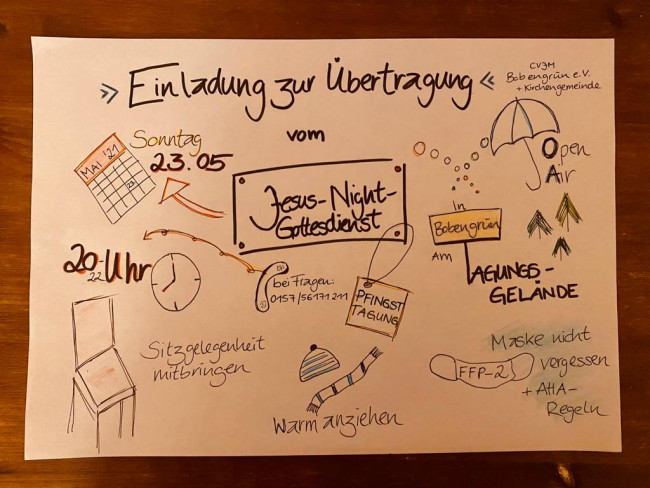 CVJM
Bobengrün e.V.
+ Kirchengemeinde
» Einladung zur Übertragung «
vom
Jesus-Night-
Gottesdienst
Sonntag
23.05
MAI '21
23.
Open
Air
in
Bobengrün
am
TAGUNGS-
GELÄNDE
20-Uhr
22
bei Fragen:
0157/56171211
PFINGST
TAGUNG
Sitzgelegenheit
mitbringen
Warm anziehen
FFP-2
Maske nicht
vergessen
+ AHA-
Regeln